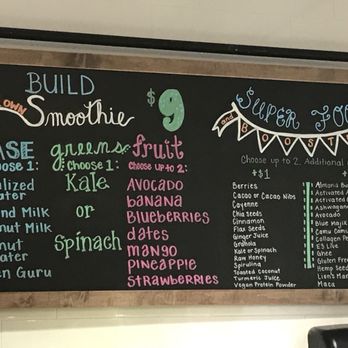 BUILD
OWN Smoothie
$9
ASE
hoose 1:
alized
ater
nd Milk
nut Milk
nut
ater
en Guru
greens
Choose 1:
Kale
or
Spinach
fruit
Choose up to 2:
AVOCADO
banana
Blueberries
dates
mango
pineapple
strawberries
SUPER FOO
and BOOST
Choose up to 2. Additional
+$1
Berries
Cacao or Cacao Nibs
Cayenne
Chia Seeds
Cinnamon
Flax Seeds
Ginger Juice
Granola
Kale or Spinach
Raw Honey
Spirulina
Toasted Coconut
Turmeric Juice
Vegan Protein Powder
+
Almond Bu
Activated A
Activated
Ashwagan
Avocado
Blue Majik
Camu Camu
Collagen P
E3 Live
Ghee
Gluten Free
Hemp Seed
Lion's Man
Maca